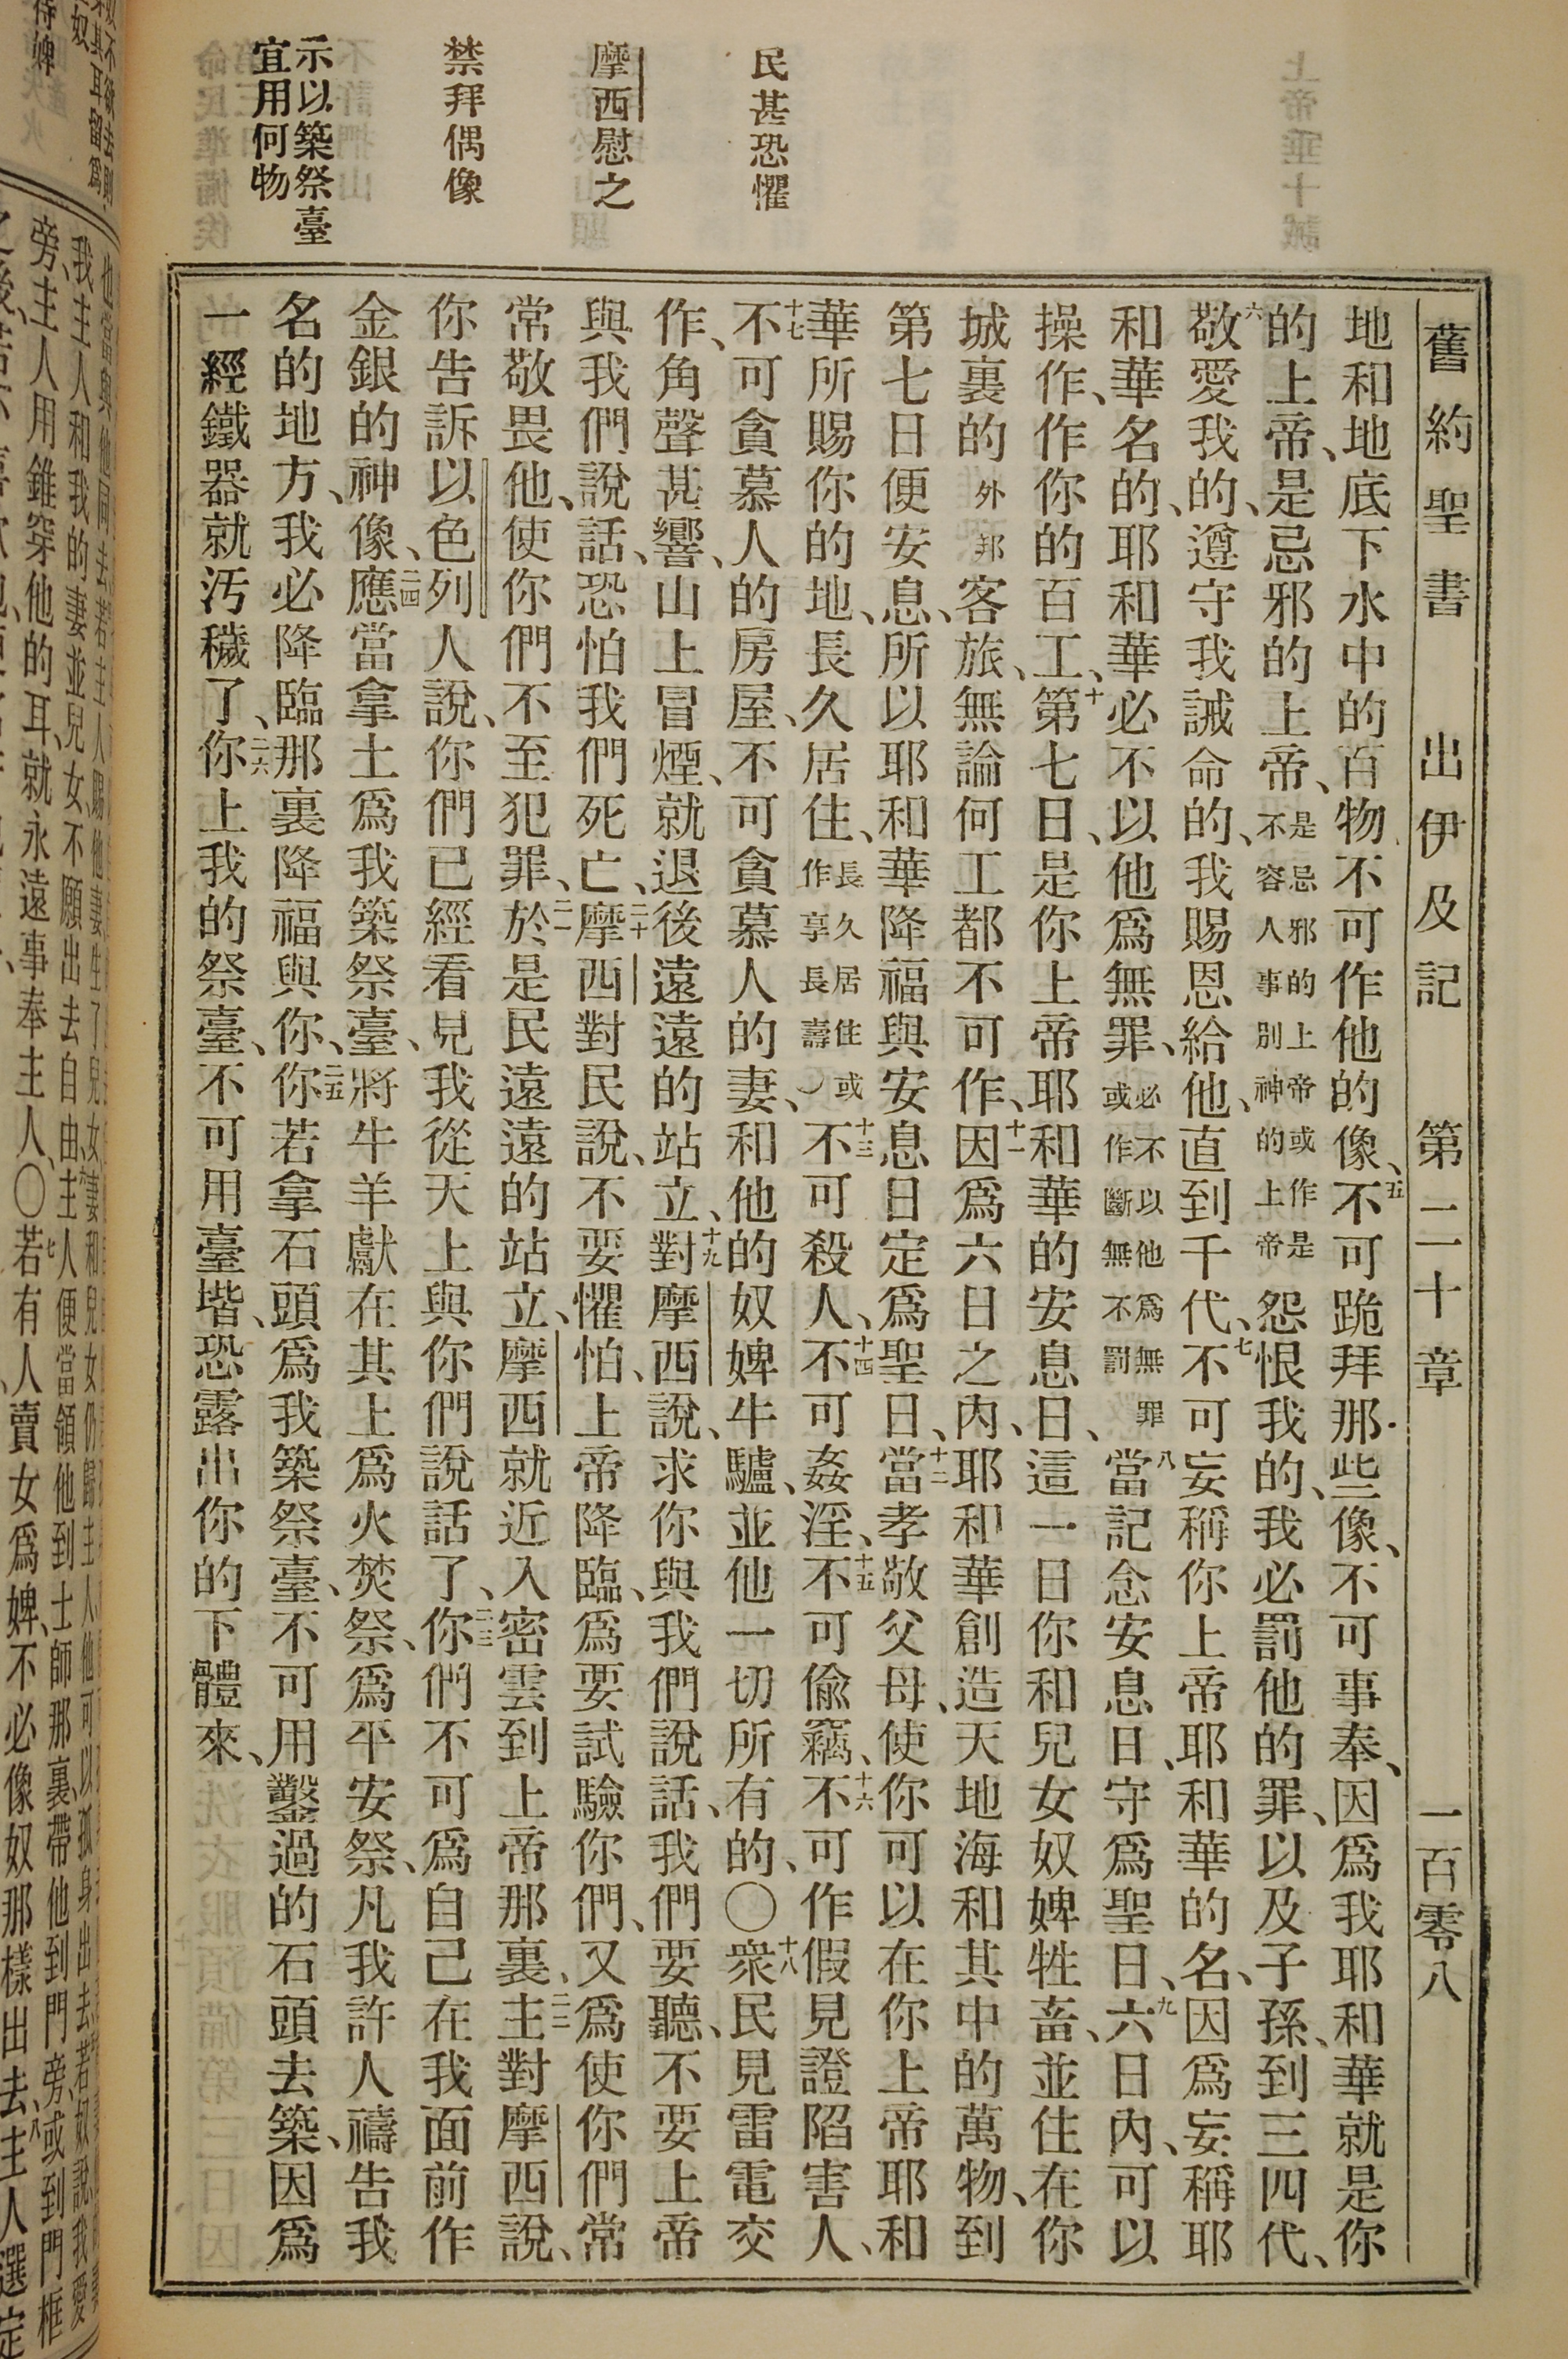 舊約聖書 出伊及記 第二十章 一百零八
民甚恐懼
摩西慰之
禁拜偶像
示以築祭臺
宜用何物
地和地底下水中的百物不可作他的像、五不可跪拜那些像、不可事奉、因爲我耶和華就是你
的上帝、是忌邪的上帝、是忌邪的上帝或作是不容人事別神的上帝怨恨我的、我必罰他的罪、以及子孫、到三四代、
六敬愛我的、遵守我誡命的、我賜恩給他、直到千代、七不可妄稱你上帝耶和華的名、因爲妄稱耶
和華名的、耶和華必不以他爲無罪、必不以他爲無罪或作斷無不罰八當記念安息日、守爲聖日、九六日內、可以
操作、作你的百工、十第七日、是你上帝耶和華的安息日、這一日你和兒女奴婢牲畜、並住在你
城裏的外邦客旅、無論何工都不可作、十一因爲六日之內、耶和華創造天地海和其中的萬物、到
第七日便安息、所以耶和華降福與安息日定爲聖日、十二當孝敬父母、使你可以在你上帝耶和
華所賜你的地、長久居住、長久居住或作享長壽十三不可殺人、十四不可姦淫、十五不可偷竊、十六不可作假見證陷害人、
十七不可貪慕人的房屋、不可貪慕人的妻、和他的奴婢牛驢、並他一切所有的、〇十八衆民見雷電交
作、角聲甚響、山上冒煙、就退後遠遠的站立、十九對摩西說、求你與我們說話、我們要聽、不要上帝
與我們說話、恐怕我們死亡、二十摩西對民說、不要懼怕、上帝降臨、爲要試驗你們、又爲使你們常
常敬畏他、使你們不至犯罪、二一於是民遠遠的站立、摩西就近入密雲到上帝那裏、二二主對摩西說、
你告訴以色列人說、你們已經看見我從天上與你們說話了、二三你們不可爲自己在我面前作
金銀的神像、二四應當拿土爲我築祭臺、將牛羊獻在其上爲火焚祭、爲平安祭、凡我許人禱告我
名的地方、我必降臨那裏降福與你、二五你若拿石頭爲我築祭臺、不可用鑿過的石頭去築、因爲
一經鐵器就汚穢了、二六你上我的祭臺、不可用臺堦、恐露出你的下體來、
我主人和我的妻並兒女、不願出去自由、主人便當領他到士師那裏、帶他到門旁、或到門框
旁、主人用錐穿他的耳、就永遠事奉主人、〇七若有人賣女爲婢、不必像奴那樣出去、八主人選定